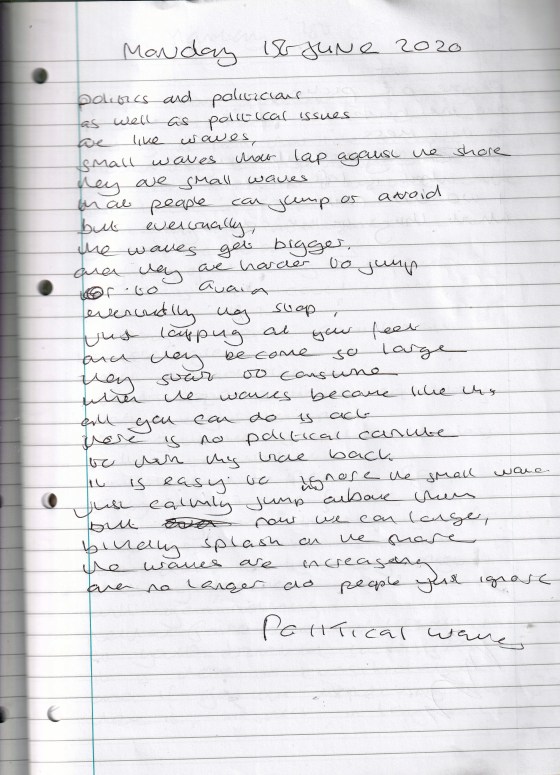 Monday 18 June 2020
politics and politicians
as well as political issues
are like waves,
small waves that lap against the shore
they are small waves
that people can jump or avoid
but eventually,
the waves get bigger,
and they are harder to jump
or to avoid
eventually they stop,
just lapping at your feet
and they become so large
they start to consume
when the waves become like this
all you can do is act
there is no political canute
to turn this tide back
it is easy to ignore the small wave
just calmly jump above them
but now we can longer,
blindly splash on the shore
the waves are increasing
and no longer do people just ignore
Political waves